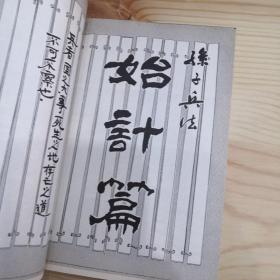 孫子兵法
始計篇
兵者国之大事死生之地存亡之道
不可不察也